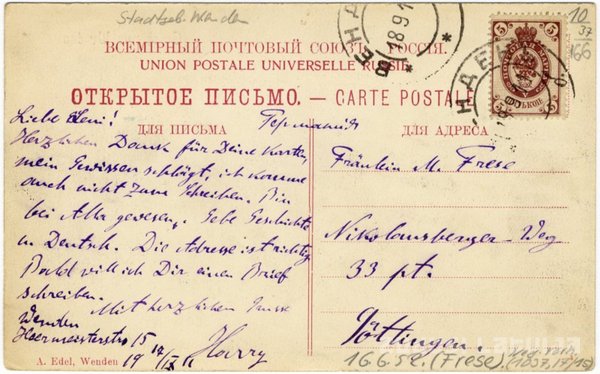 Stadtgeb. Wenden
10
37
166
ВЕНДЕН
18 9 1
ВСЕМІРНЫЙ ПОЧТОВЫЙ СОЮЗЪ. РОССІЯ.
UNION POSTALE UNIVERSELLE RUSSIE
ОТКРЫТОЕ ПИСЬМО. — CARTE POSTALE
5 5
5 КОП 5
Германія
ДЛЯ ПИСЬМА
ДЛЯ АДРЕСА
Liebe Leni!
Herzlichen Dank für Deine Karte,
mein Gewissen schlägt, ich komme
auch nicht zum Schreiben. Bin
bei Alla gewesen. Gebe Geschichte
u Deutsch. Die Adresse ist richtig
Bald will ich Dir einen Brief
schreiben.
Mit herzlichem Grusse
Harry
Wenden
Heermeisterstr 15
19 17/IX 11
Fräulein M. Frese
Nikolausberger-Weg
33 pt.
Göttingen.
A. Edel, Wenden
16.6.52. (Frese)